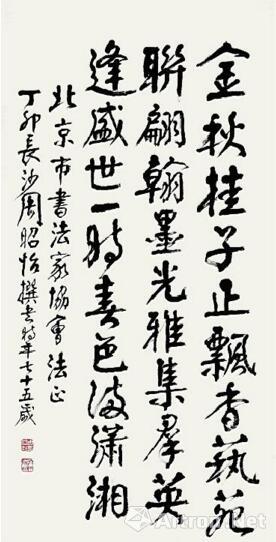 金秋桂子正飄香藝苑
聯翩翰墨光雅集群英
逢盛世一時春色滿瀟湘
北京市書法家協會法正
丁卯長沙周昭怡撰書時年七十五歲